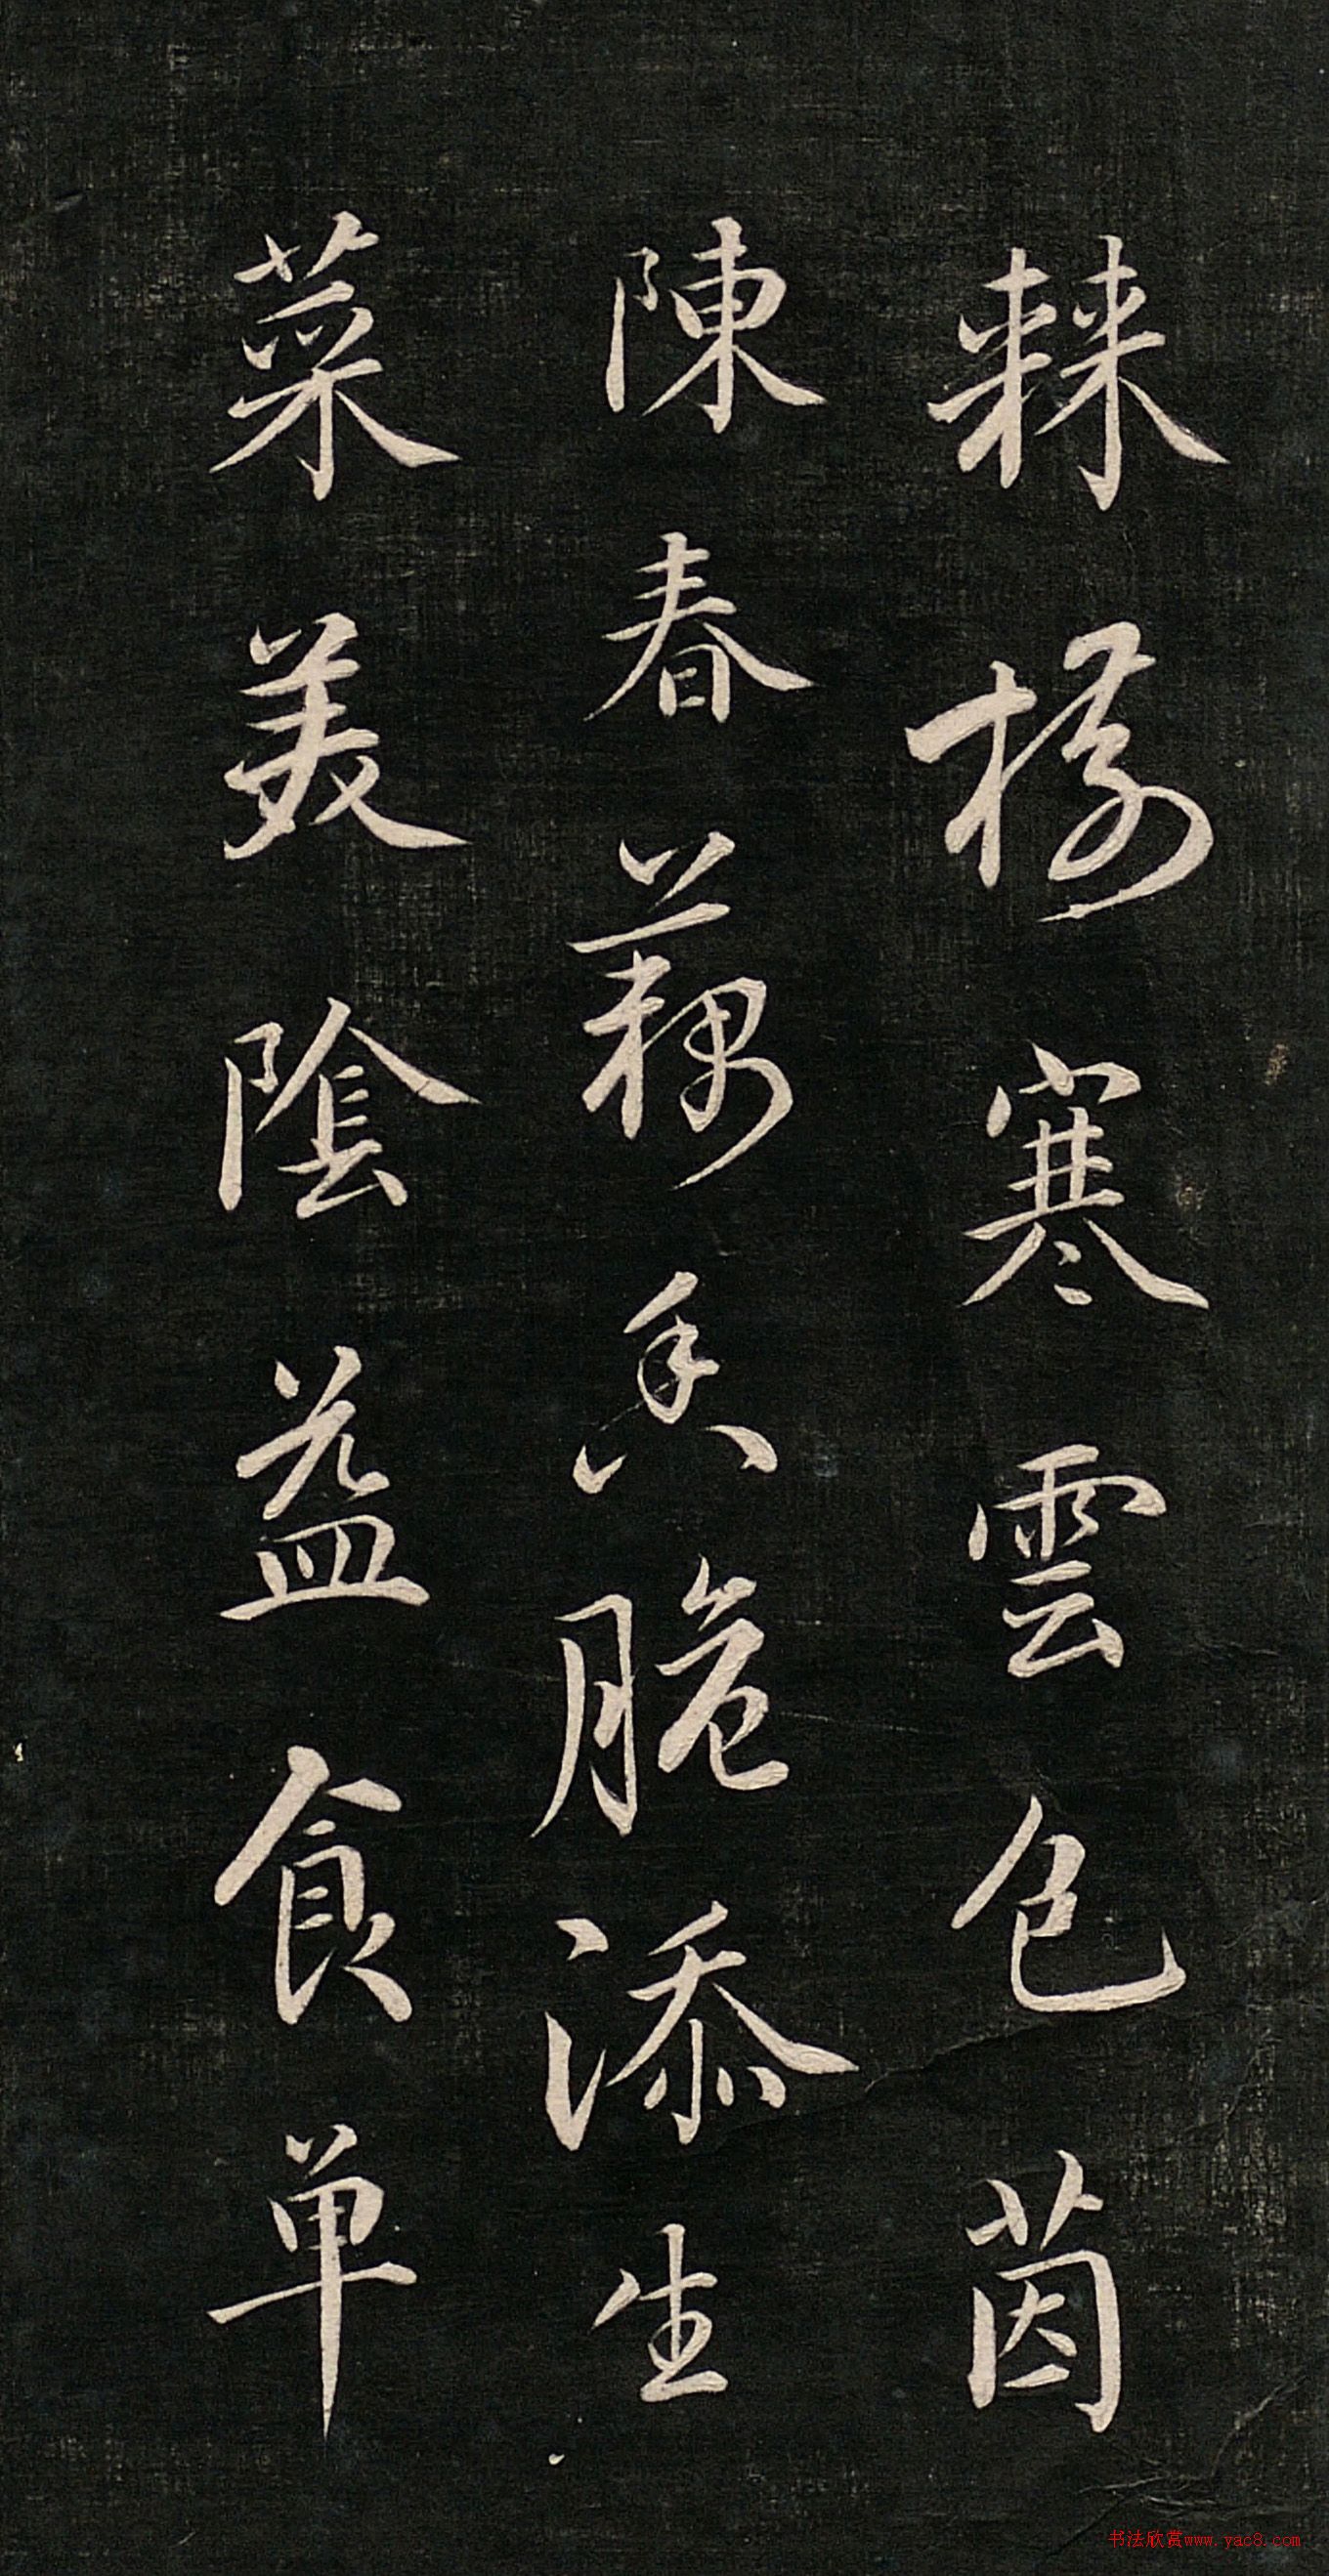 棘樹寒雲色茵
陳春藕香脆添生
菜美陰益食单
书法欣赏www.yac8.com